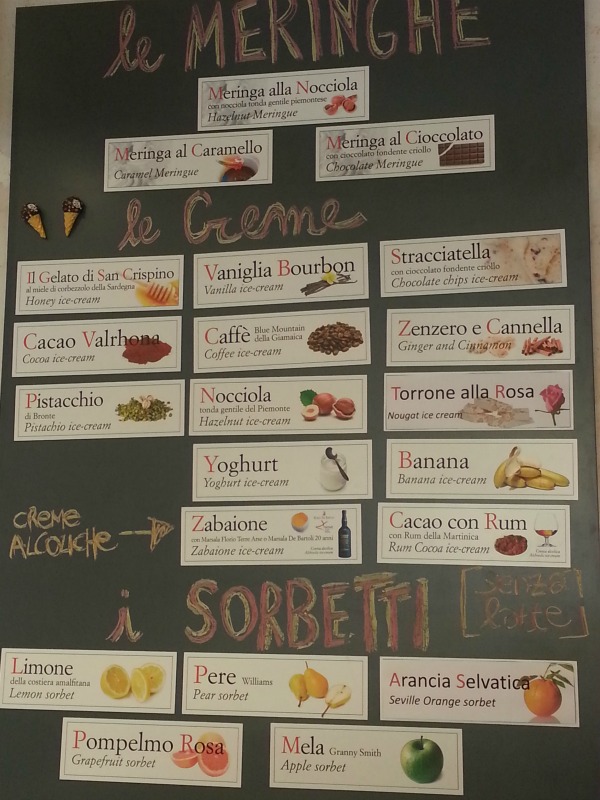 le MERINGHE
Meringa alla Nocciola
con nocciola tonda gentile piemontese
Hazelnut Meringue
Meringa al Caramello
Caramel Meringue
Meringa al Cioccolato
con cioccolato fondente criollo
Chocolate Meringue
le Creme
Il Gelato di San Crispino
al miele di corbezzolo della Sardegna
Honey ice-cream
Vaniglia Bourbon
Vanilla ice-cream
Stracciatella
con cioccolato fondente criollo
Chocolate chips ice-cream
Cacao Valrhona
Cocoa ice-cream
Caffè Blue Mountain
della Giamaica
Coffee ice-cream
Zenzero e Cannella
Ginger and Cinnamon
Pistacchio
di Bronte
Pistachio ice-cream
Nocciola
tonda gentile del Piemonte
Hazelnut ice-cream
Torrone alla Rosa
Nougat ice cream
Yoghurt
Yoghurt ice-cream
Banana
Banana ice-cream
CREME
ALCOLICHE
Zabaione
con Marsala Florio Terre Arse o Marsala De Bartoli 20 anni
Zabaione ice-cream
Cacao con Rum
con Rum della Martinica
Rum Cocoa ice-cream
i SORBETTI [senza
latte]
Limone
della costiera amalfitana
Lemon sorbet
Pere Williams
Pear sorbet
Arancia Selvatica
Seville Orange sorbet
Pompelmo Rosa
Grapefruit sorbet
Mela Granny Smith
Apple sorbet